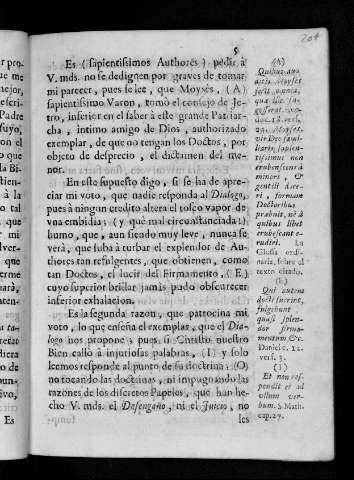 204
5
Es (sapientissimos Authores) pedir à
V. mds. no se dedignen por graves de tomar
mi parecer, pues se lee, que Moysès, (A)
sapientissimo Varon, tomò el consejo de Je-
tro, inferior en el saber à este grande Patriar-
cha, intimo amigo de Dios, authorizado
exemplar, de que no tengan los Doctos, por
objeto de desprecio, el dictamen del me-
nor.
En este supuesto digo, si se ha de apre-
ciar mi voto, que nadie responda al Dialogo,
pues à ningun credito altera el tosco vapor de
vna embidia; (y què mal circunstanciada!)
humo, que, aun siendo muy leve, nunca se
verà, que suba à turbar el explendor de Au-
thores tan refulgentes, que obtienen, como
tan Doctos, el lucir del Firmamento, (E)
cuyo superior brillar jamàs pudo obscurecer
inferior exhalacion.
Es la segunda razon, que patrocina mi
voto, lo que enseña el exemplar, que el Dia-
logo nos propone; pues si Christo nuestro
Bien callò à injuriosas palabras, (I) y solo
leemos responde al punto de su doctrina: (O)
no tocando las doctrinas, ni impugnando las
razones de los discretos Papeles, que han he-
cho V. mds. el Desengaño, ni el Juicio, no
les
(A)
Quibus au-
ditis Moyses
fecit omnia,
quæ ille sug-
gesserat. Exo-
d. 18. vers.
24. Moyses,
vir Dei fami-
liaris, sapien-
tissimus non
erubescens à
minori, &
gentili doce-
ri, formam
Doctoribus
præbuit, nè à
quibus libet
erubescant e-
rudiri. La
Glossa ordi-
naria, sobre el
texto citado.
(E)
Qui autem
docti fuerint,
fulgebunt
quasi splen-
dor firma-
mentum, &c.
Daniel c. 12.
vers. 3.
(I)
Et non res-
pondit ei ad
vllum ver-
bum. S. Math.
cap. 27.